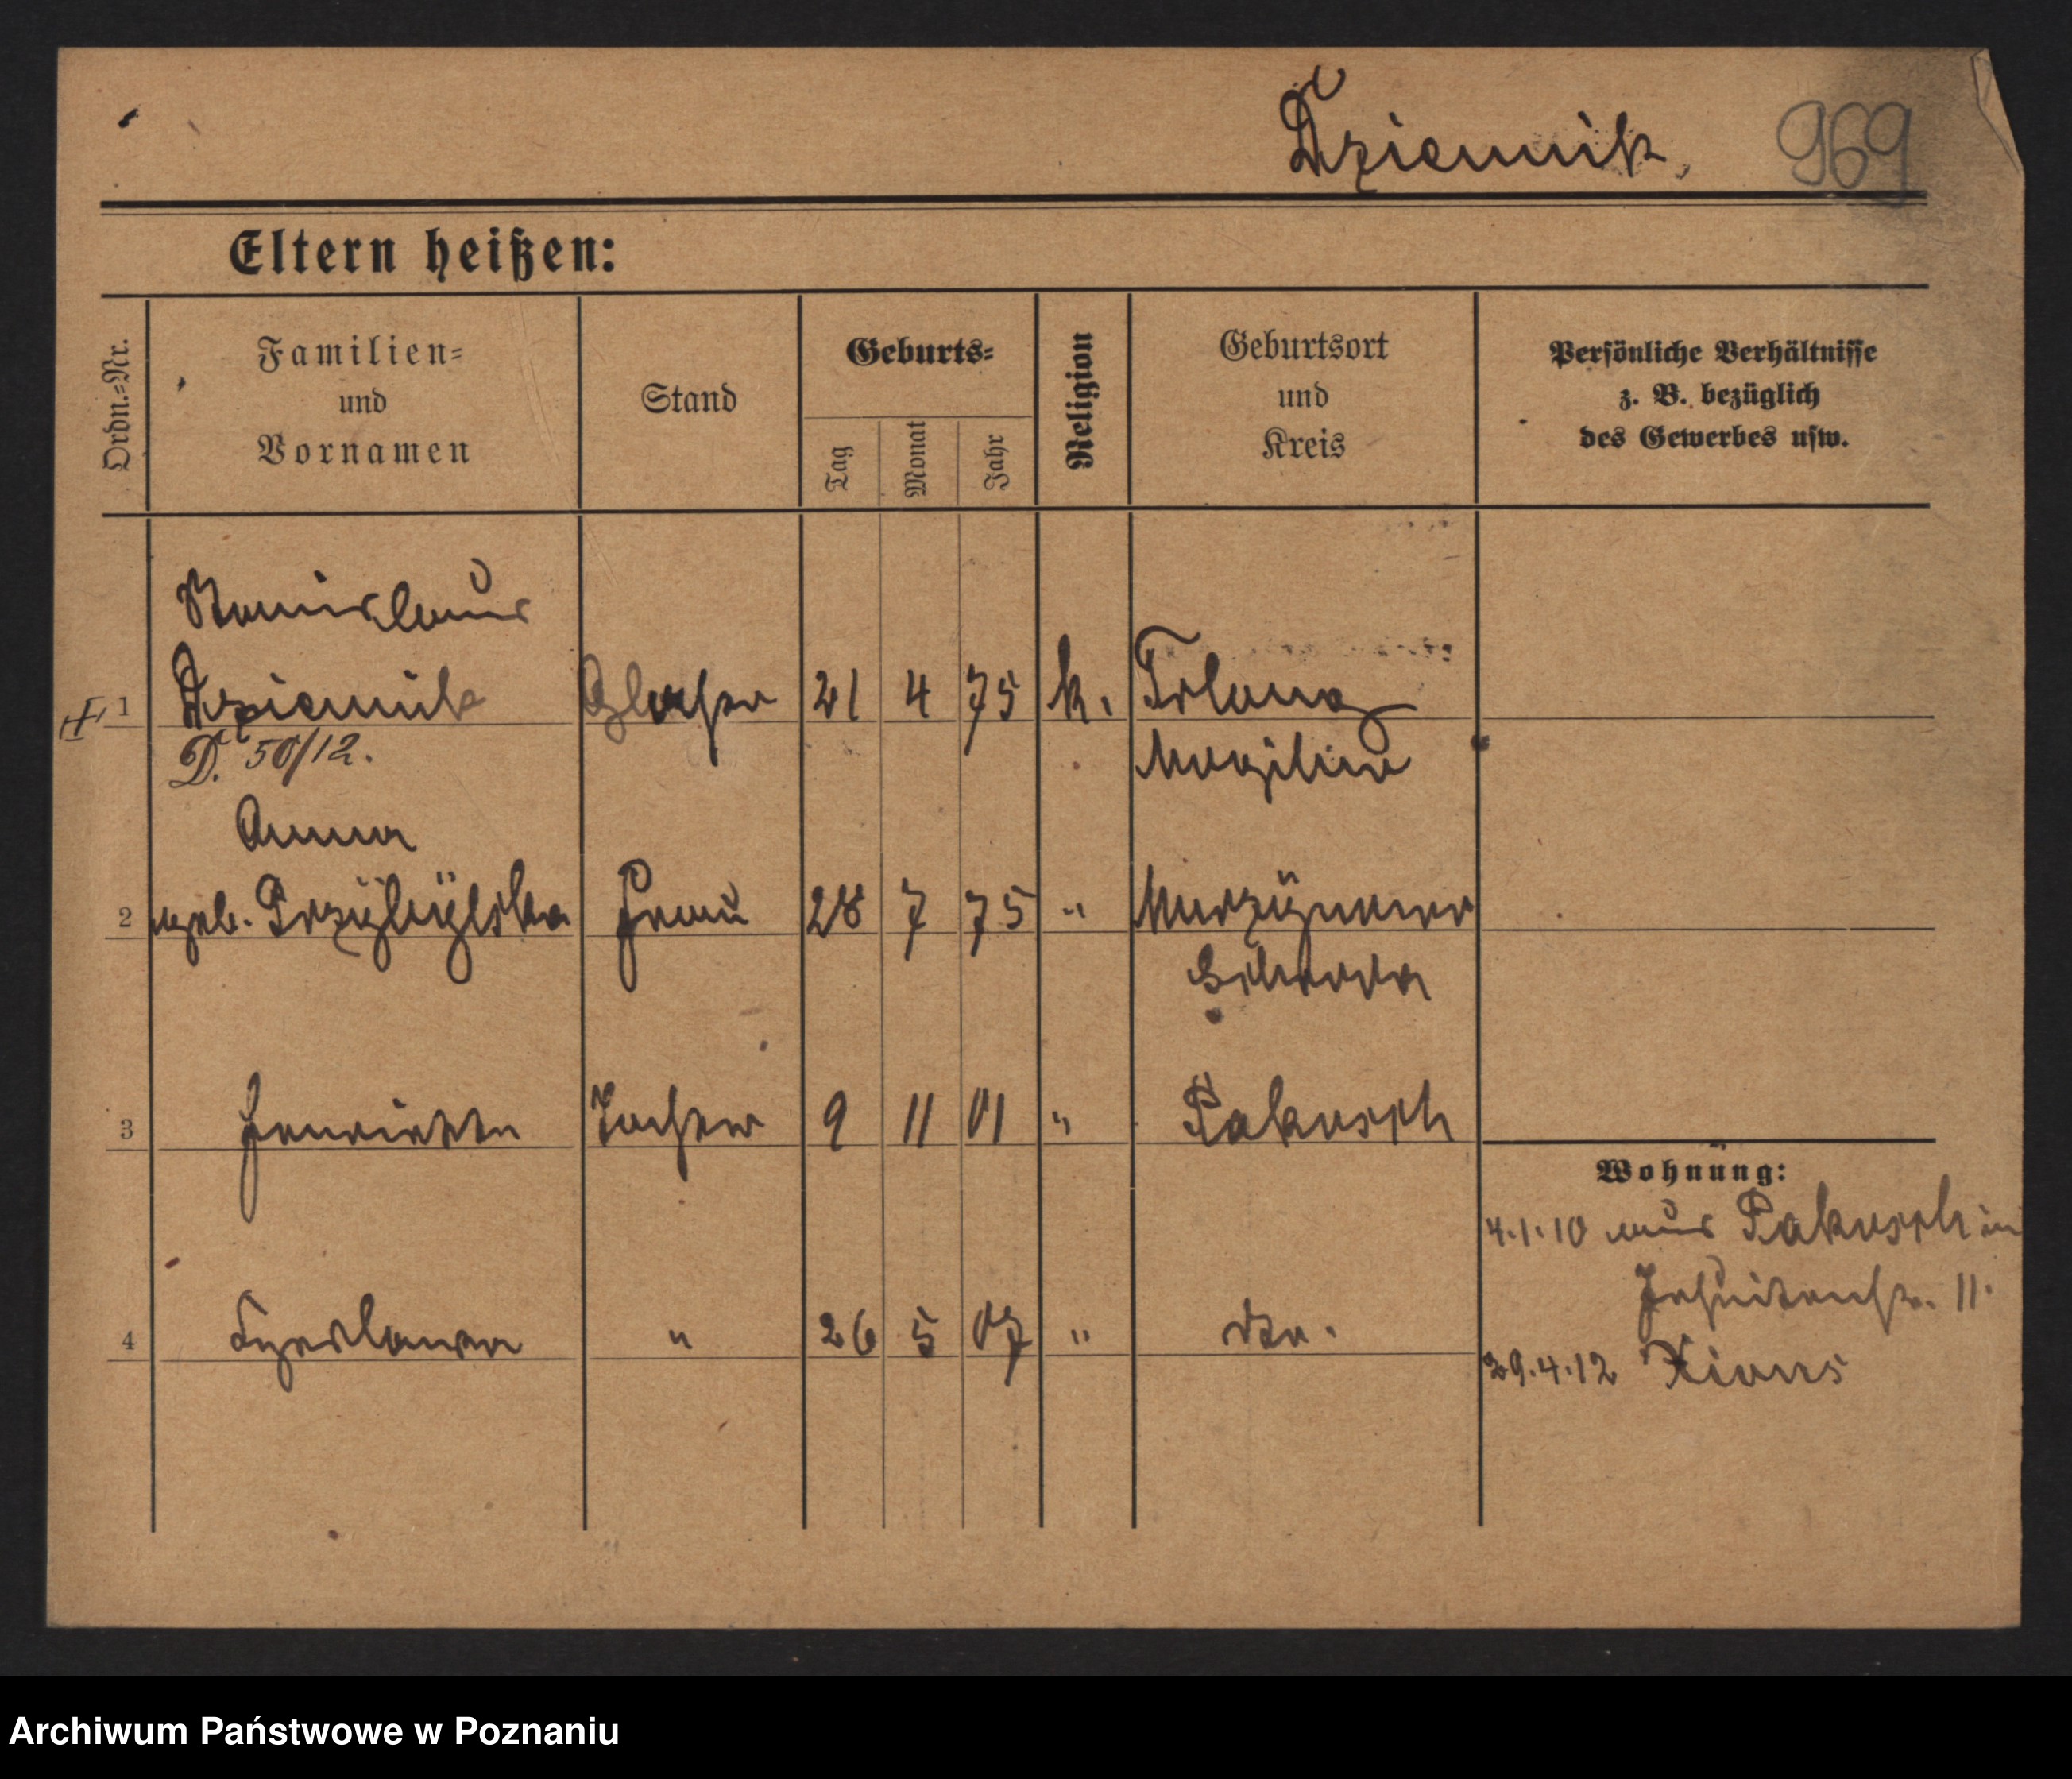 Dziennik, 969
Eltern heißen:
Ordn.=Nr.
Familien=
und
Vornamen
Stand
Geburts=
Tag
Monat
Jahr
Religion
Geburtsort
und
Kreis
Persönliche Verhältnisse
z. B. bezüglich
des Gewerbes usw.
Stanislaus
1 Dziennik Glaser 21 4 75 k.
D. 50/12. Mogilno
Anna
2 geb. Frau 28 7 75 "
Schroda
3 Henriette Tochter 9 11 01 " Pakosch
Wohnung:
4.1.10 aus Pakosch in
Jesuitenstr. 11.
4 Czeslawa " 26 5 07 " dto.
29.4.12 Xions
Archiwum Państwowe w Poznaniu